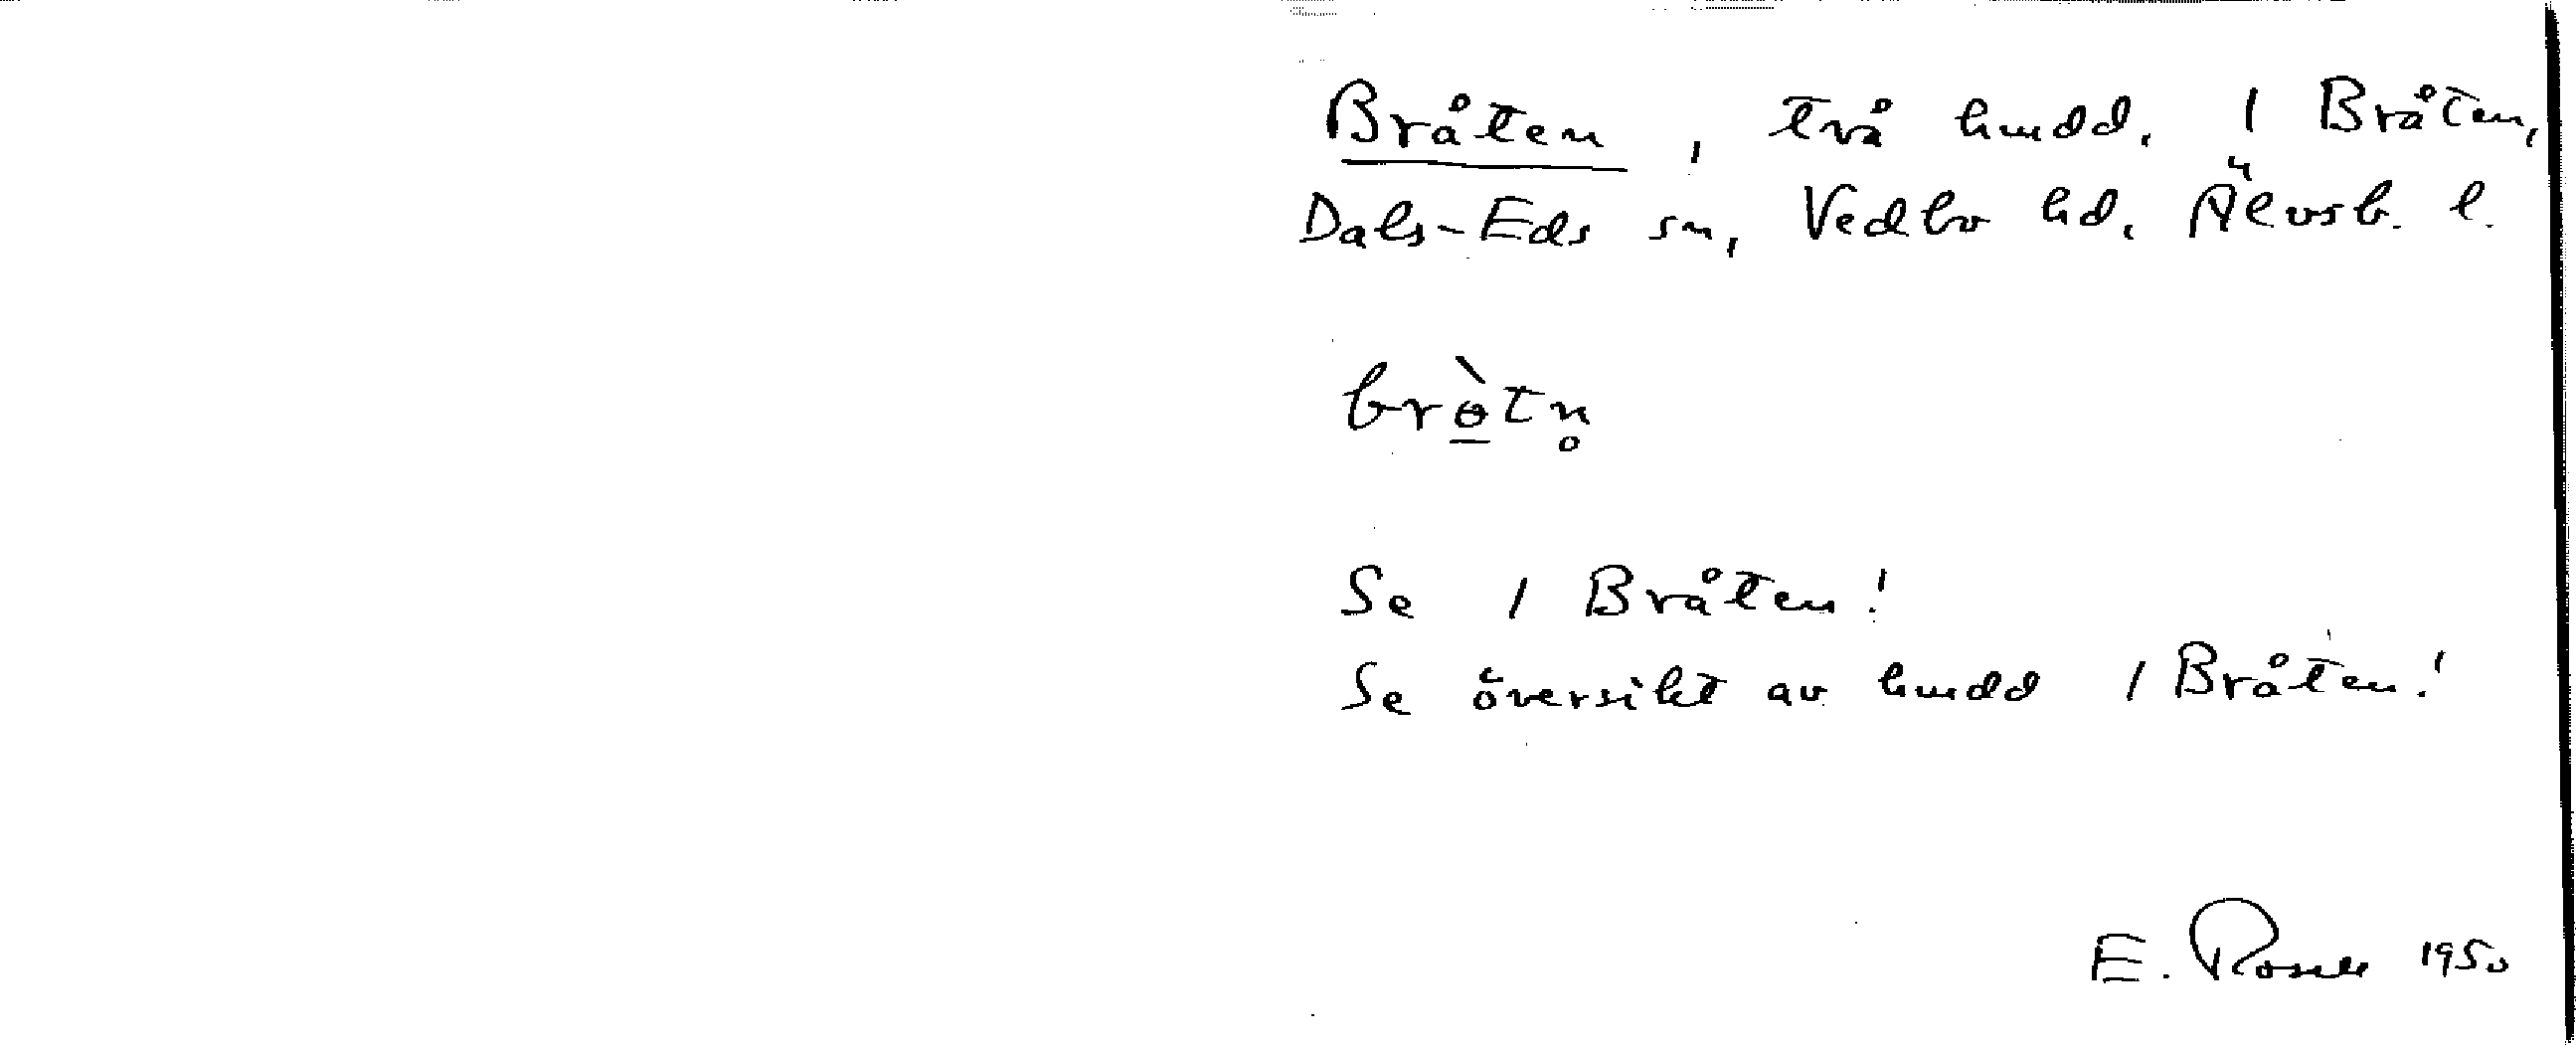 Bråten, två hmdd. 1 Bråten,
Dals-Eds sn, Vedbo hd. Älvsb. l.
brɵ̠̀tn̥
Se 1 Bråten!
Se översikt av hmdd 1 Bråten!
E. Rosell 1950